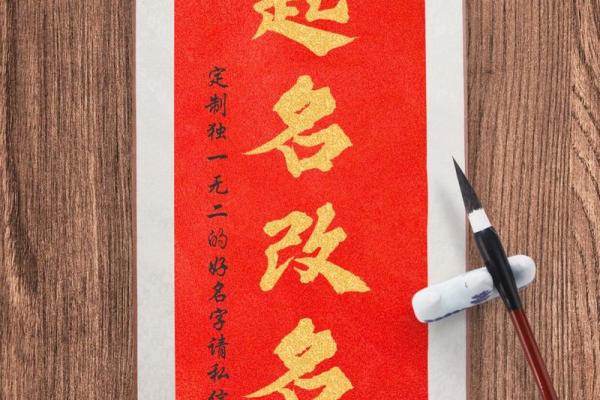 起名改名
定制独一无二的好名字请私信